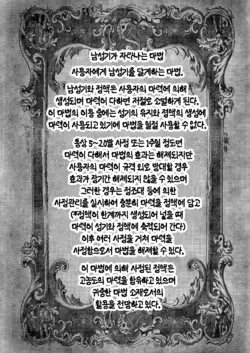 남성기가 자라나는 마법
사용자에게 남성기를 달게하는 마법.
남성기와 정액은 사용자의 마력에 의해
생성되며 마력이 다하면 저절로 소멸하게 된다.
이 마법의 이용 중에는 성기의 유지와 정액의 생성에
마력이 사용되고 있기에 마법을 일절 사용할 수 없다.
통상 5~20발 사정 또는 1주일 정도면
마력이 다해서 마법의 효과는 해제되지만
사용자의 마력이 규격 외로 방대할 경우
효과가 장기간 해제되지 않을 수 있으며
그러한 경우는 정조대 등에 의한
사정관리를 실시하여 충분히 마력을 정액에 담고
(*정액이 한계까지 생성되어 넣을 때
마력이 성기와 정액에 축적되어 간다)
이후 여러 사정을 거쳐 마력을
사정함으로서 마법을 해제할 수 있다.
이 마법에 의해 사정된 정액은
고농도의 마력을 함유하고 있으며
귀중한 마법 소재로서의
활용을 전망하고 있다.